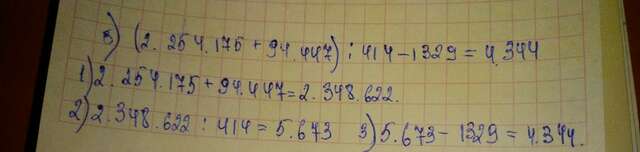 8) (2. 254.175 + 94.447) : 414 - 1329 = 4.344
1) 2. 254.175 + 94.447 = 2. 348.622.
2) 2.348.622 : 414 = 5.673 3) 5.673 - 1329 = 4.344.